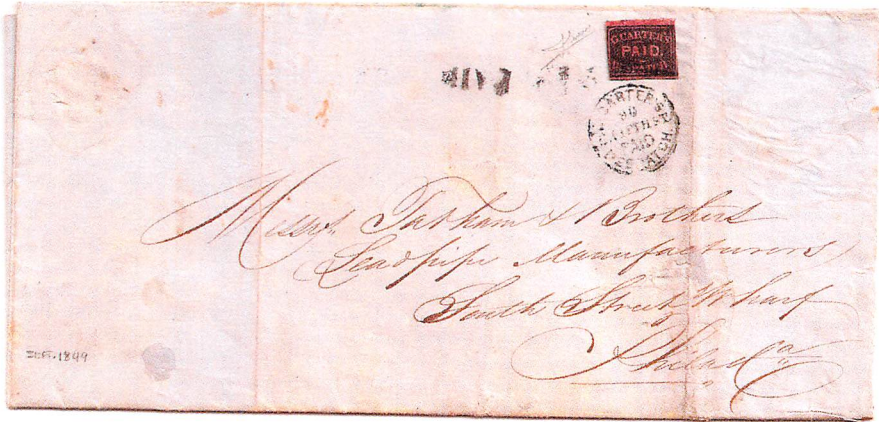 CARTER'S
PAID.
DESPATCH
PAID
CARTER'S P.
FIFTH S
PAID
DESPATCH
Messrs. Tatham & Brothers
Leadpipe Manufacturers
South Street Wharf
Philada
1849